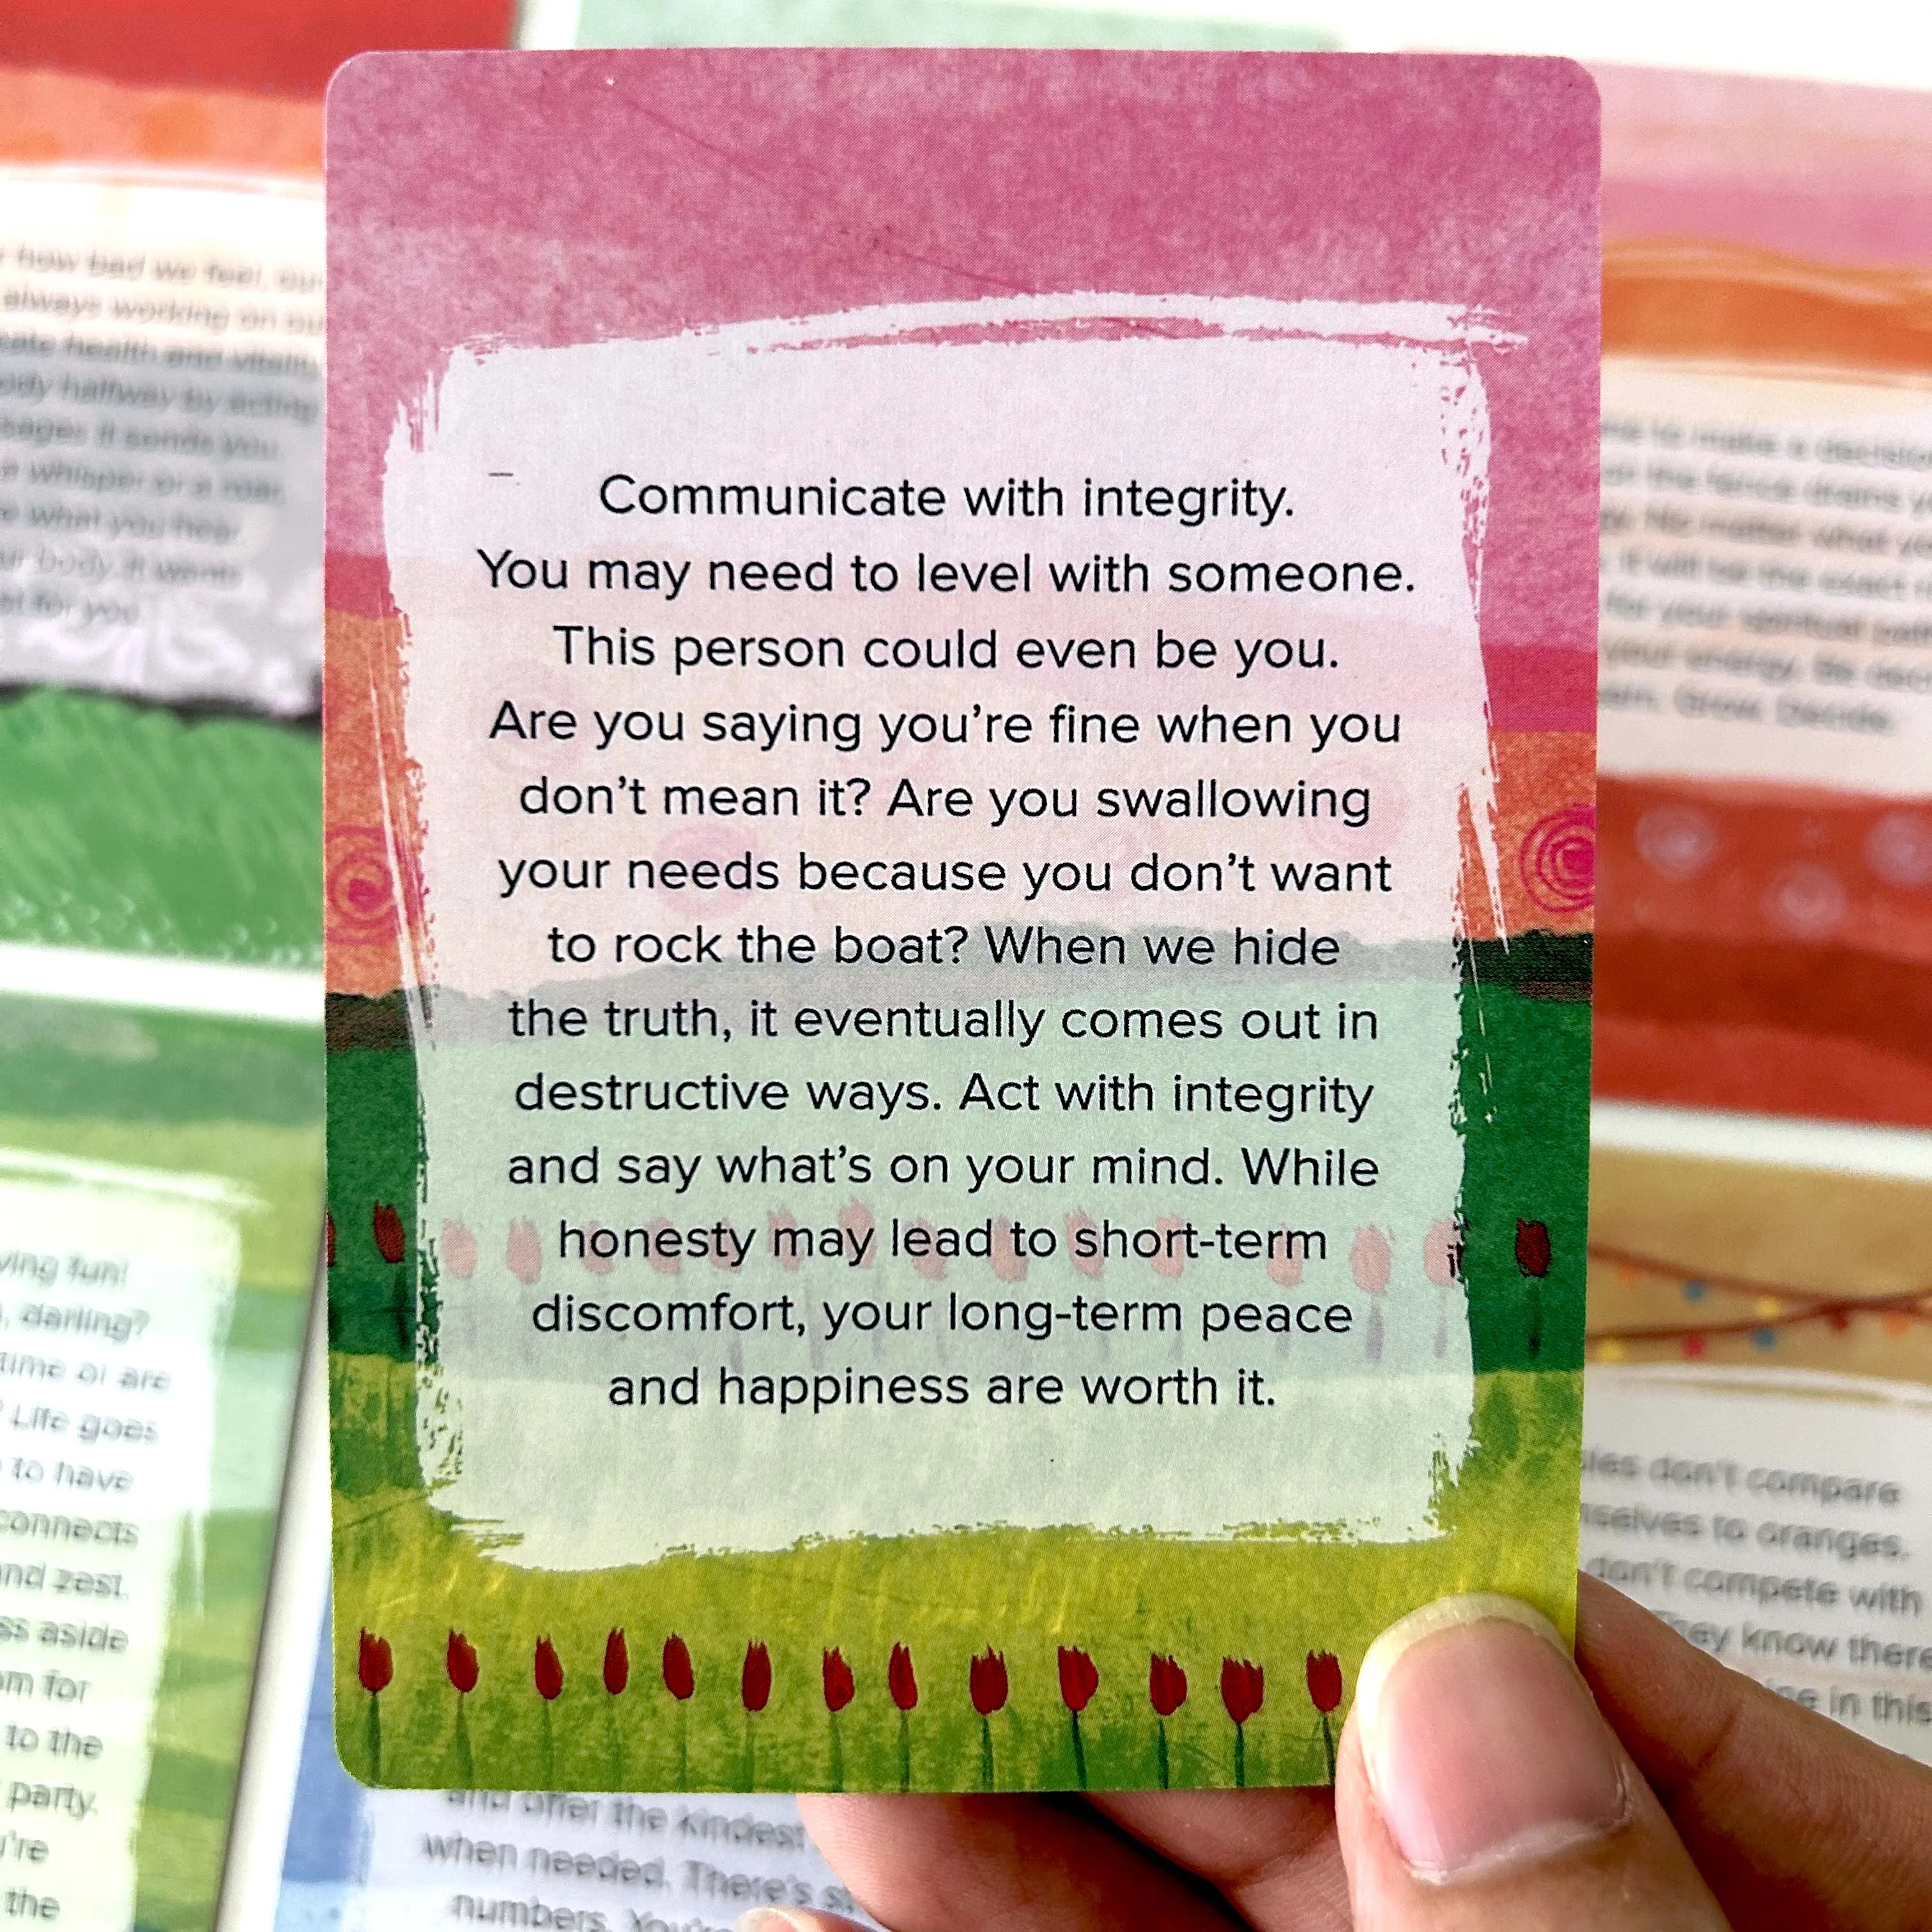 Communicate with integrity.
You may need to level with someone.
This person could even be you.
Are you saying you're fine when you
don't mean it? Are you swallowing
your needs because you don't want
to rock the boat? When we hide
the truth, it eventually comes out in
destructive ways. Act with integrity
and say what's on your mind. While
honesty may lead to short-term
discomfort, your long-term peace
and happiness are worth it.
how bad we feel, our
always working on our
health and vitality
halfway by acting
sends you.
whisper or a roar,
what you hear
body. It wants
for you
to make a decision
the fence drains
No matter what you
it will be the exact
for your spiritual path
your energy. Be
Grow. Decide.
fun!
darling?
time or are
Life goes
to have
connects
and zest.
aside
for
to the
party.
the
and offer the kindest
when needed. There's
numbers. You're
don't compare
to oranges.
don't compete with
know there
in this